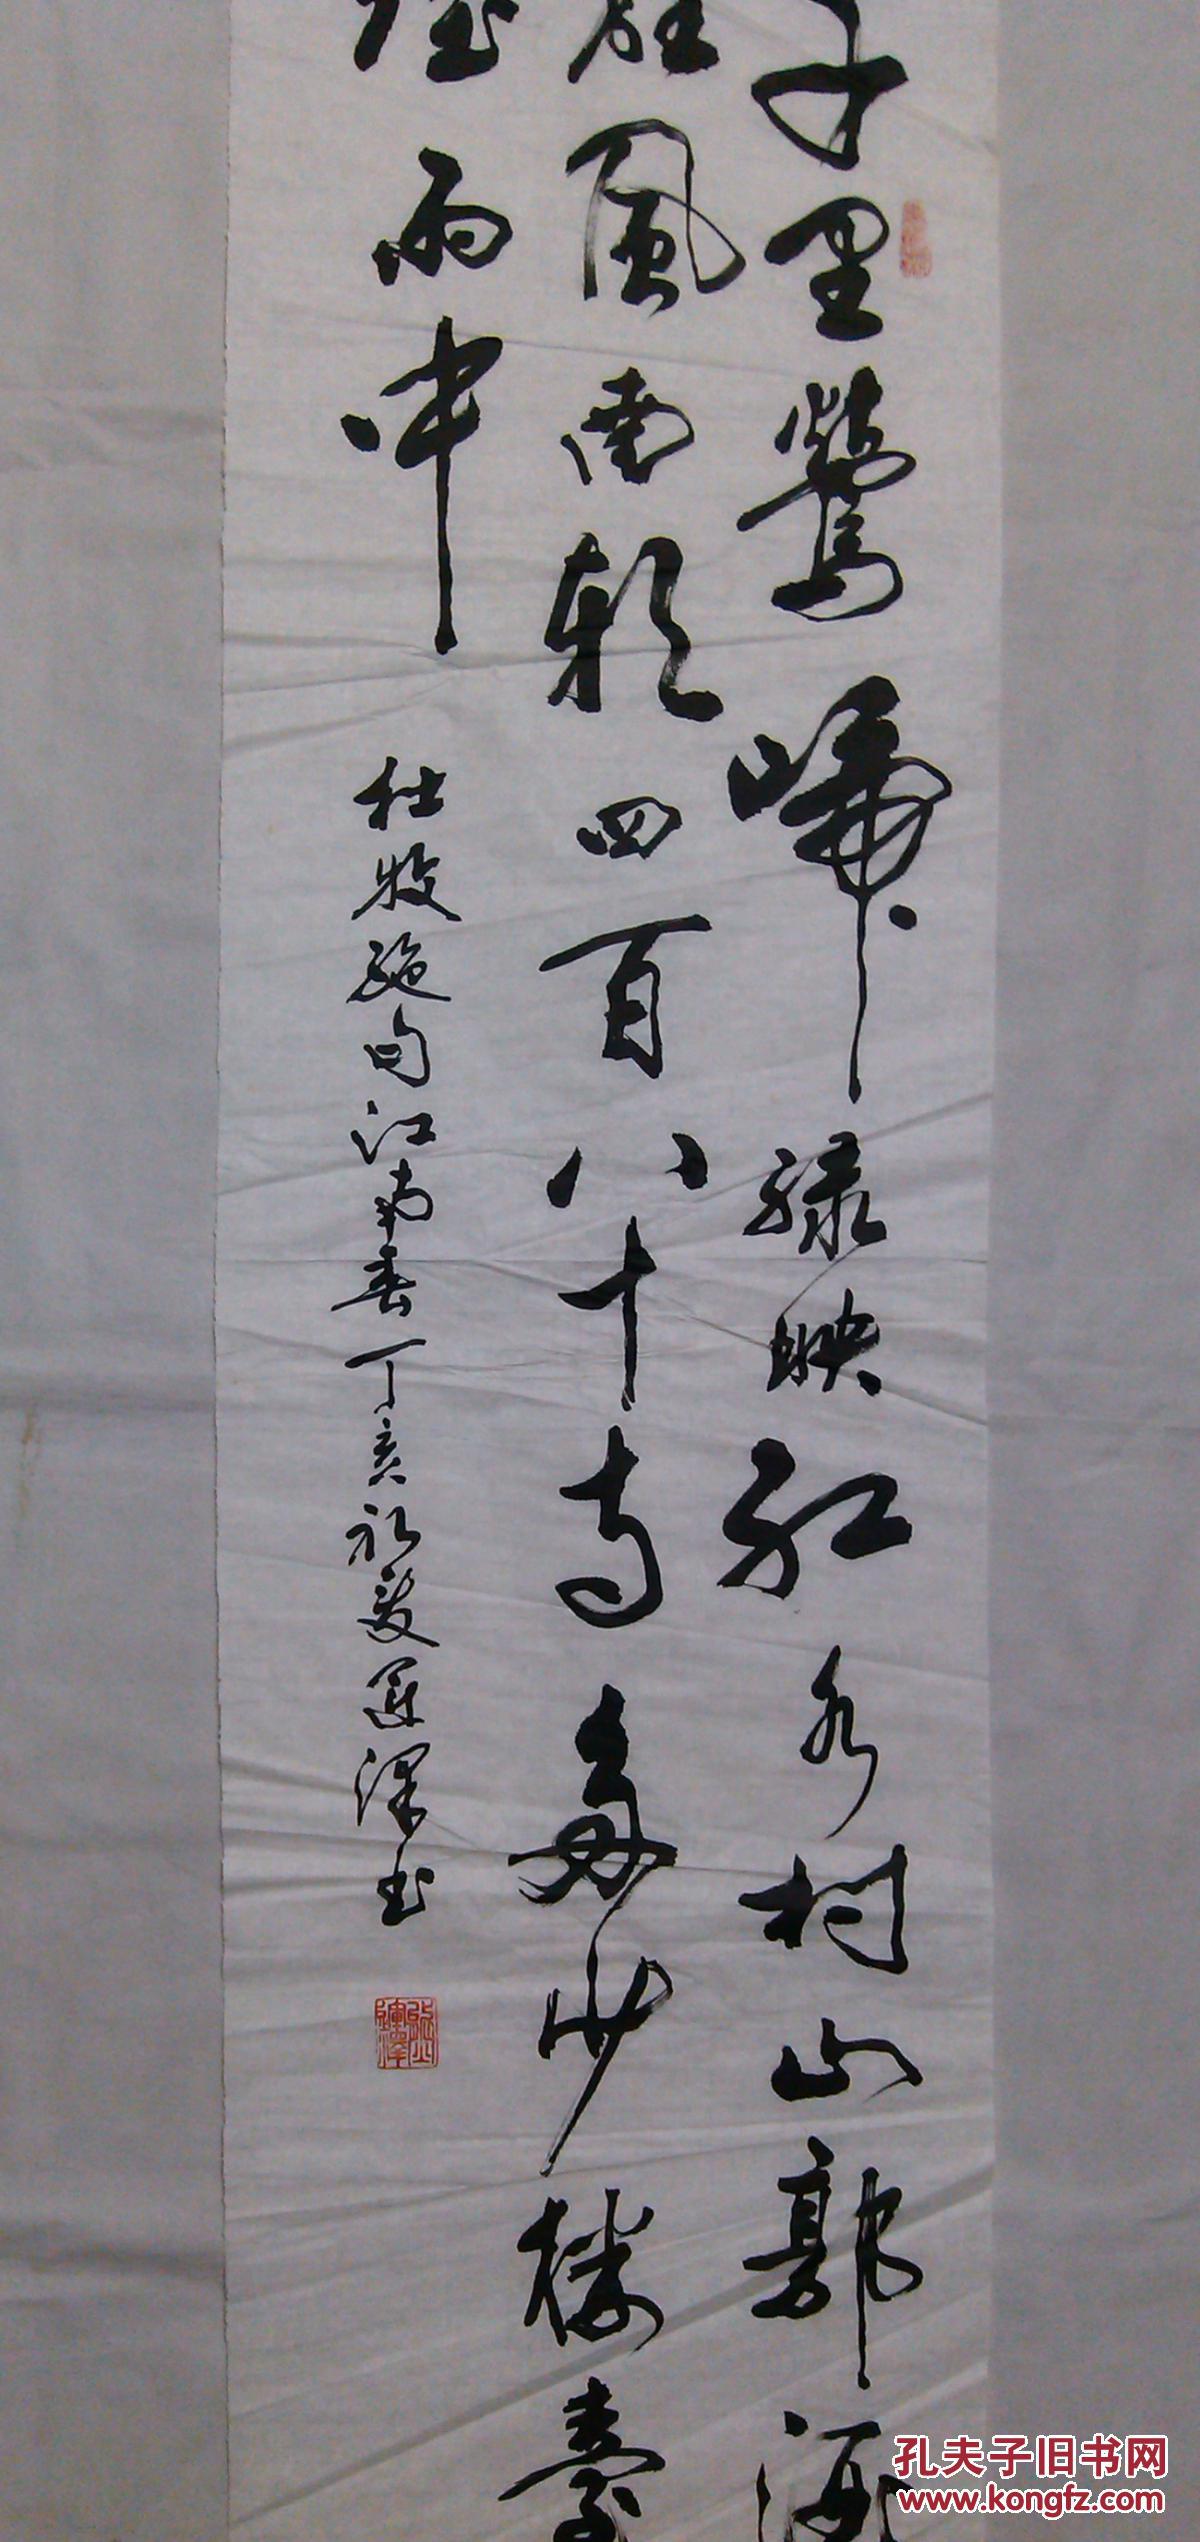 千里鶯啼綠映紅水村山郭酒
旗風南朝四百八十寺多少樓臺
煙雨中
杜牧絕句江南春丁亥初夏運澤書
孔夫子旧书网
www.kongfz.com